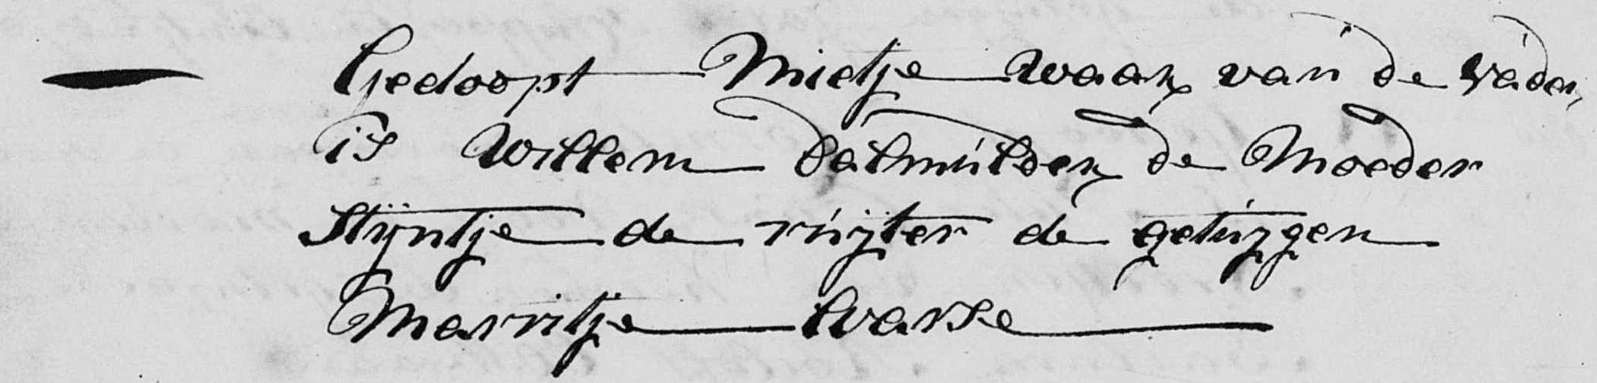 Gedoopt Mietje waar van de vader
is Willem Dalmulder de Moeder
Stijntje de ruijter de getuijgen
Marritje Warse